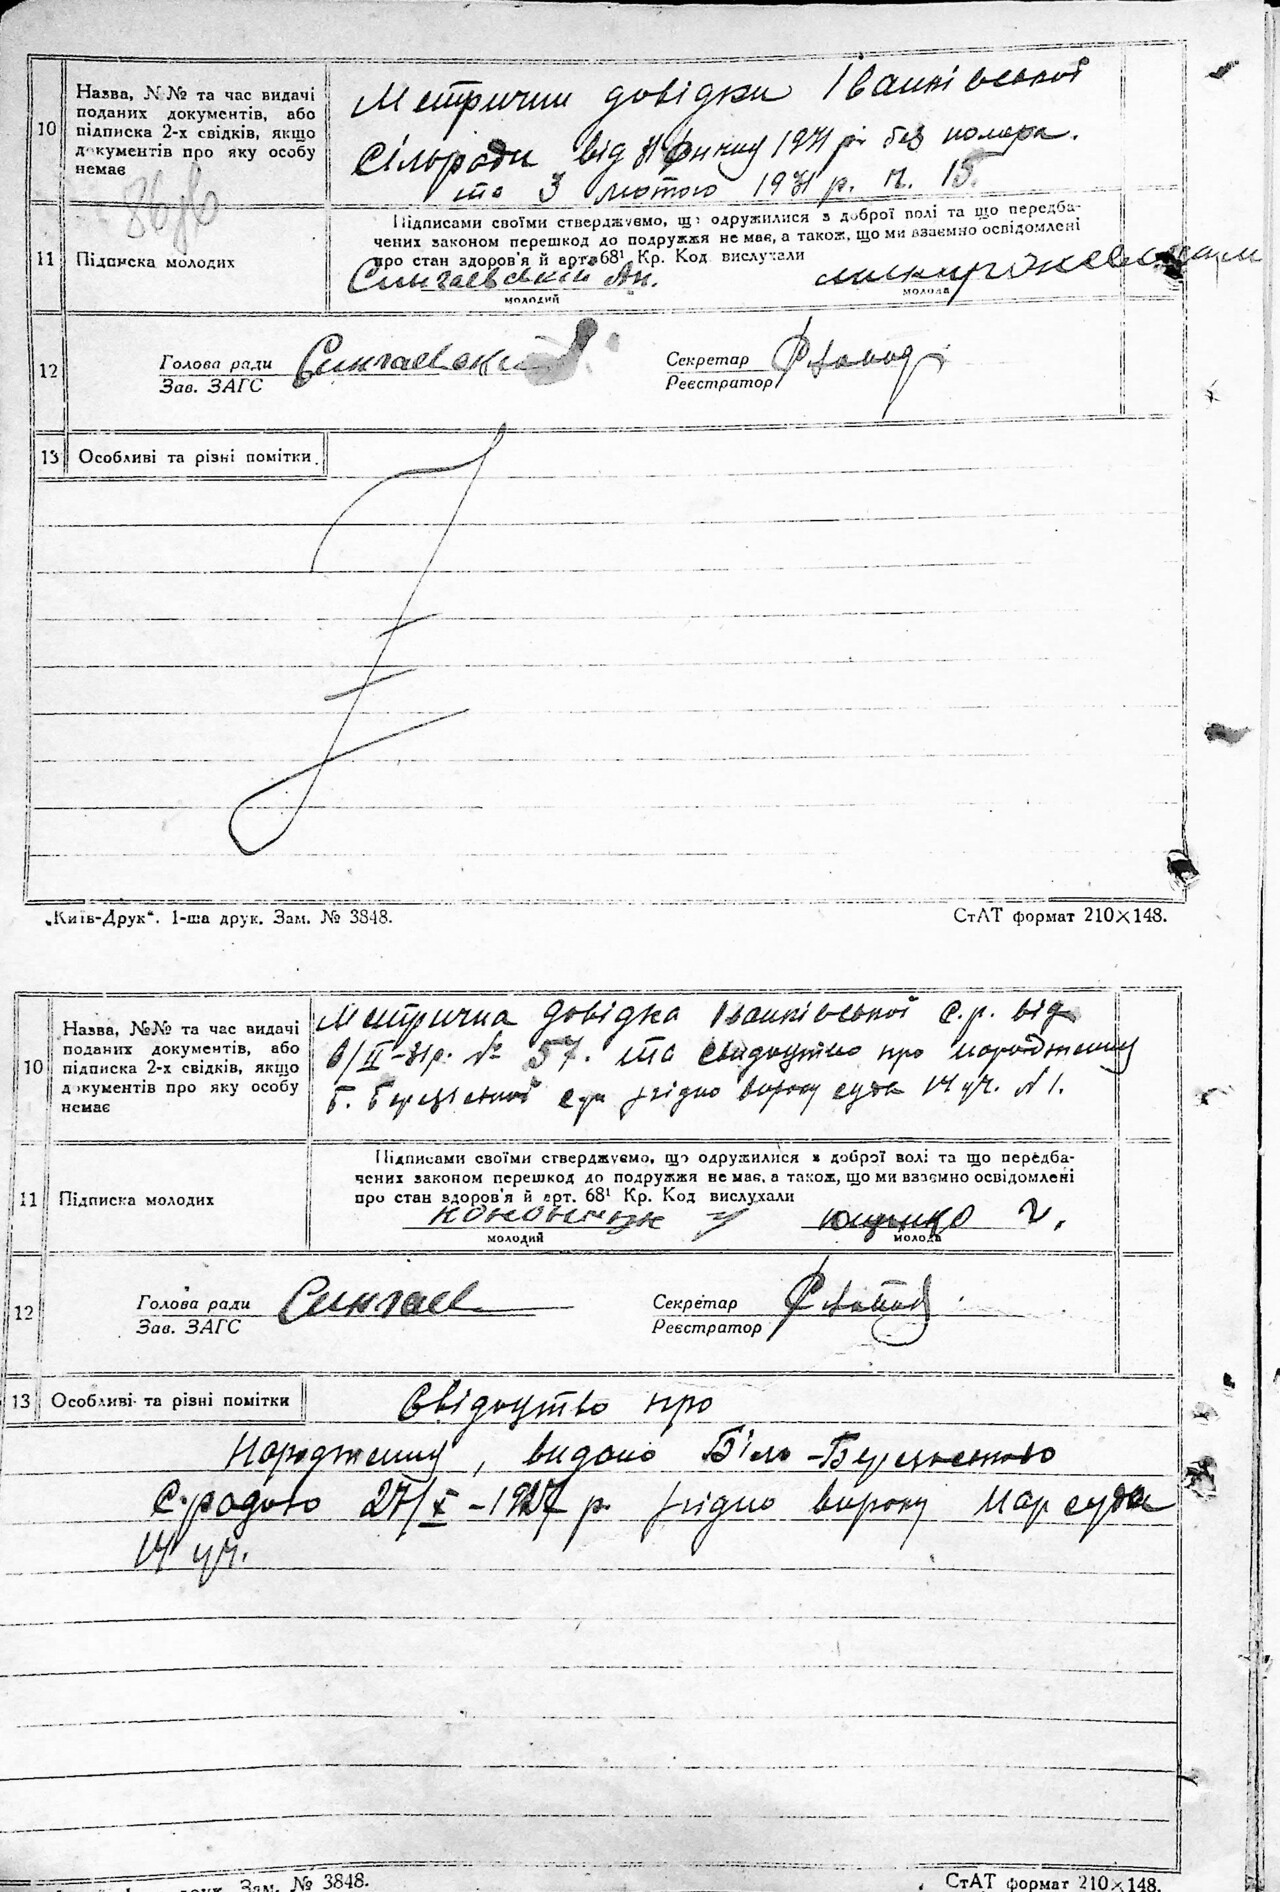 10
Назва, N№ та час видачі
поданих документів, або
підписка 2-х свідків, якщо
документів про яку особу
немає
Метрични довідки Іванківської
Сільради від 1931 р. без номера.
та 3 лютого 1931 р. н. 15.
11
Підписка молодих
Підписами своїми стверджуємо, що одружилися з доброї волі та що передба-
чених законом перешкод до подружжя не має, а також, що ми взаємно освідомлені
про стан здоров'я й арт. 68¹ Кр. Код вислухали
Сингаевский Ан.
молодий
молода
12
Голова ради
Зав. ЗАГС
Секретар
Реєстратор
13
Особливі та різні помітки.
„Київ-Друк“. 1-ша друк. Зам. № 3848.
СтАТ формат 210×148.
10
Назва, №№ та час видачі
поданих документів, або
підписка 2-х свідків, якщо
документів про яку особу
немає
Метрична довідка Іванківської с.р. від
6/II-31р. № 57. та свидоцтво про народження
Б. Березьської с.р. згідно вироку суда 14 уч. N 1.
11
Підписка молодих
Підписами своїми стверджуємо, що одружилися з доброї волі та що передба-
чених законом перешкод до подружжя не має, а також, що ми взаємно освідомлені
про стан здоров'я й арт. 68¹ Кр. Код вислухали
молодий
молода
12
Голова ради
Зав. ЗАГС
Сингаев
Секретар
Реєстратор
13
Особливі та різні помітки
Свідоцтво про
народження, видано Біло-
С.радою 27/X-1927 р згідно вироку Нар суда
14 уч.
Зам. № 3848.
СтАТ формат 210×148.